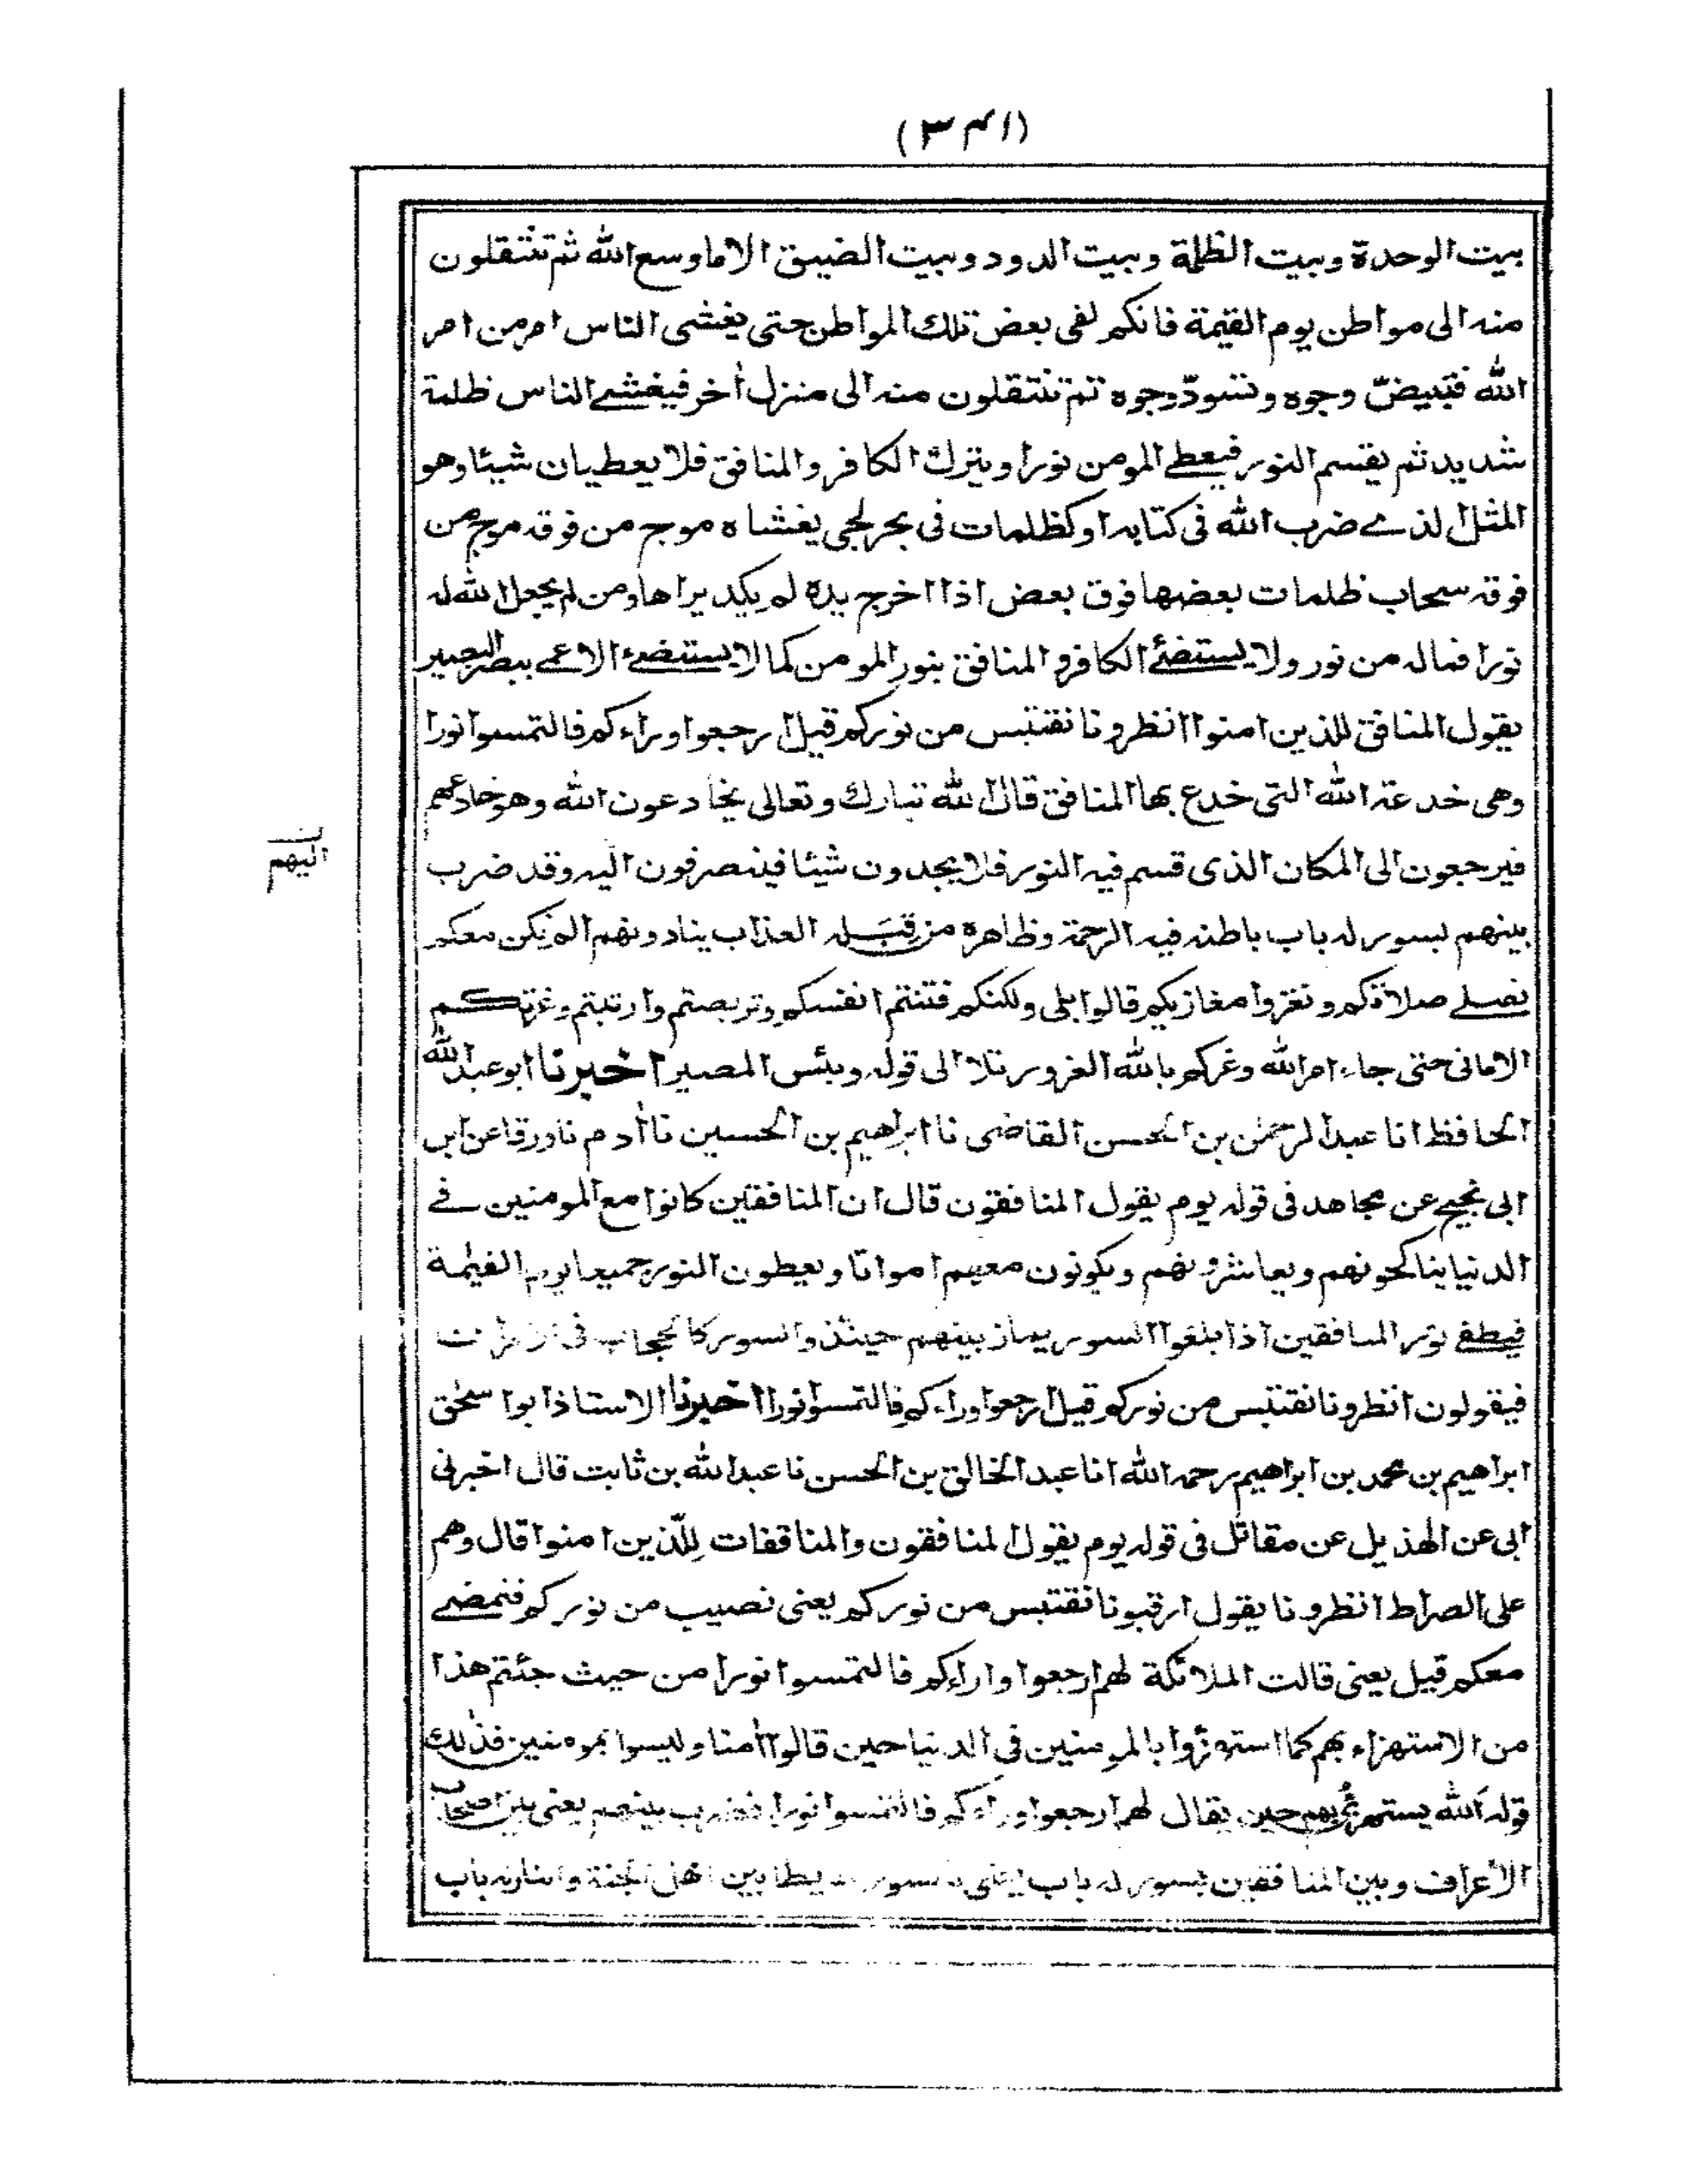 (٣٤١)
بيت الوحدة وبيت الظلمة وبيت الدود وبيت الضيق الا ما وسع الله ثم تنتقلون
منه الى مواطن يوم القيمة فانكم لفى بعض تلك المواطن حتى يغشى الناس امر من امر
الله فتبيضّ وجوه وتسودّ وجوه ثم تنتقلون منه الى منزل أخر فيغشے الناس ظلمة
شديد ثم يقسم النور فيعطے المومن نورا ويترك الكافر والمنافق فلا يعطيان شيئا وهو
المثل الذے ضرب الله فى كتابه او كظلمات فى بحر لجى يغشاه موج من فوقه موج من
فوقه سحاب ظلمات بعضها فوق بعض اذا اخرج يده لم يكد يراها ومن لم يجعل الله له
نورا فماله من نور ولا يستضئ الكافر والمنافق بنور المومن كما لا يستضء الاعمے ببصر البصير
يقول المنافق للذين امنوا انظرونا نقتبس من نوركم قيل ارجعوا وراءكم فالتمسوا نورا
وهى خدعة الله التى خدع بها المنافق قال الله تبارك وتعالى يخادعون الله وهو خادعهم
فيرجعون الى المكان الذى قسم فيه النور فلا يجدون شيئا فينصرفون اليه وقد ضرب
اليهم
بينهم بسور له باب باطنه فيه الرحمة وظاهره من قبَله العذاب ينادونهم الم نكن معكم
نصلے صلاتكم ونغزوا مغازيكم قالوا بلى ولكنكم فتنتم انفسكم وتربصتم وارتبتم وغرتكم
الامانى حتى جاء امر الله وغركم بالله الغرور تلا الى قوله وبئس المصير اخبرنا ابو عبد الله
الحافظ انا عبد الرحمٰن بن الحسن القاضى نا ابراهيم بن الحسين نا أدم نا ورقا عن ابن
ابى نجيح عن مجاهد فى قوله يوم يقول المنافقون قال ان المنافقين كانوا مع المومنين فے
الدنيا يناكحونهم ويعاشرونهم ويكونون معهم امواتا ويعطون النور جميعا يوم القيٰمة
فيطفے نور المنافقين اذا بلغوا السور يماز بينهم حينئذ والسور كالحجاب فى
فيقولون انظرونا نقتبس من نوركم قيل ارجعوا وراءكم فالتمسوا نورا اخبرنا الاستاذ ابو اسحٰق
ابراهيم بن محمد بن ابراهيم رحمه الله انا عبد الخالق بن الحسن نا عبد الله بن ثابت قال اخبرنى
ابى عن الهذيل عن مقاتل فى قوله يوم يقول المنافقون والمنافقات للّذين امنوا قال وهم
على الصراط انظرونا يقول ارقبونا نقتبس من نوركم يعنى نصيب من نوركم فنمضے
معكم قيل يعنى قالت الملائكة لهم ارجعوا واراءكم فالتمسوا نورا من حيث جئتم هذا
من الاستهزاء بهم كما استهزؤا بالمومنين فى الدنيا حين قالوا أمنا وليسوا بمومنين فذٰلك
قوله الله يستهزئُ بهم حين يقال لهم ارجعوا وراءكم فالتمسوا نورا فضرب بينهم يعنى بين اصحاب
الاعراف وبين المنافقين بسور له باب يعنى بين اهل الجنة والنار له باب